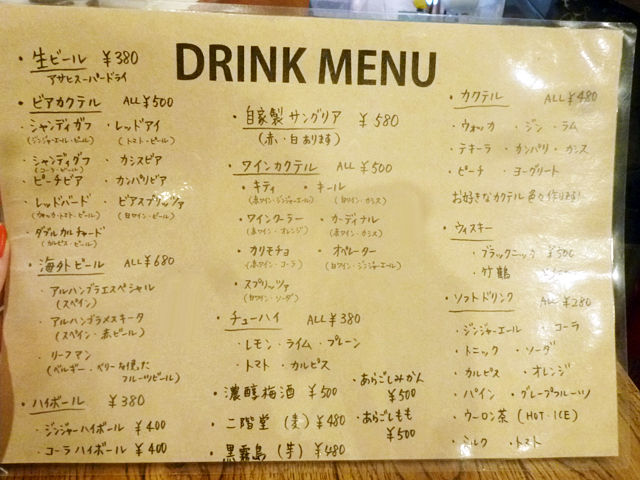 DRINK MENU
・生ビール ¥380
アサヒスーパードライ
・ビアカクテル ALL¥500
・シャンディガフ ・レッドアイ
(ジンジャーエール・ビール) (トマト・ビール)
・シャンディグフ ・カシスビア
(コーラ・ビール)
・ピーチビア ・カンパリビア
・レッドバード ・ビアスプリッツァ
(ウォッカ・トマト・ビール) (白ワイン・ビール)
・ダブルカルチャード
(カルピス・ビール)
・海外ビール ALL¥680
・アルハンブラエスペシャル
(スペイン)
・アルハンブラメスキータ
(スペイン・赤ビール)
・リーフマン
(ベルギー・ベリーを使った
フルーツビール)
・ハイボール ¥380
・ジンジャーハイボール ¥400
・コーラハイボール ¥400
・自家製サングリア ¥580
(赤・白あります)
・ワインカクテル ALL ¥500
・キティ ・キール
(赤ワイン・ジンジャーエール) (白ワイン・カシス)
・ワインクーラー ・カーディナル
(赤ワイン・オレンジ) (赤ワイン・カシス)
・カリモチョ ・オペレーター
(赤ワイン・コーラ) (白ワイン・ジンジャーエール)
・スプリッツァ
(白ワイン・ソーダ)
・チューハイ ALL ¥380
・レモン・ライム・プレーン
・トマト・カルピス
・濃醇梅酒 ¥500
・二階堂(麦)¥480
・黒霧島(芋)¥480
・あらごしみかん
¥500
・あらごしもも
¥500
・カクテル ALL ¥480
・ウォッカ ・ジン ・ラム
・テキーラ ・カンパリ・カシス
・ピーチ ・ヨーグリート
お好きなカクテル色々作ります!
・ウィスキー
・ブラックニッカ ¥500
・竹鶴
・ソフトドリンク ALL ¥280
・ジンジャーエール ・コーラ
・トニック ・ソーダ
・カルピス ・オレンジ
・パイン ・グレープフルーツ
・ウーロン茶(HOT・ICE)
・ミルク ・トマト